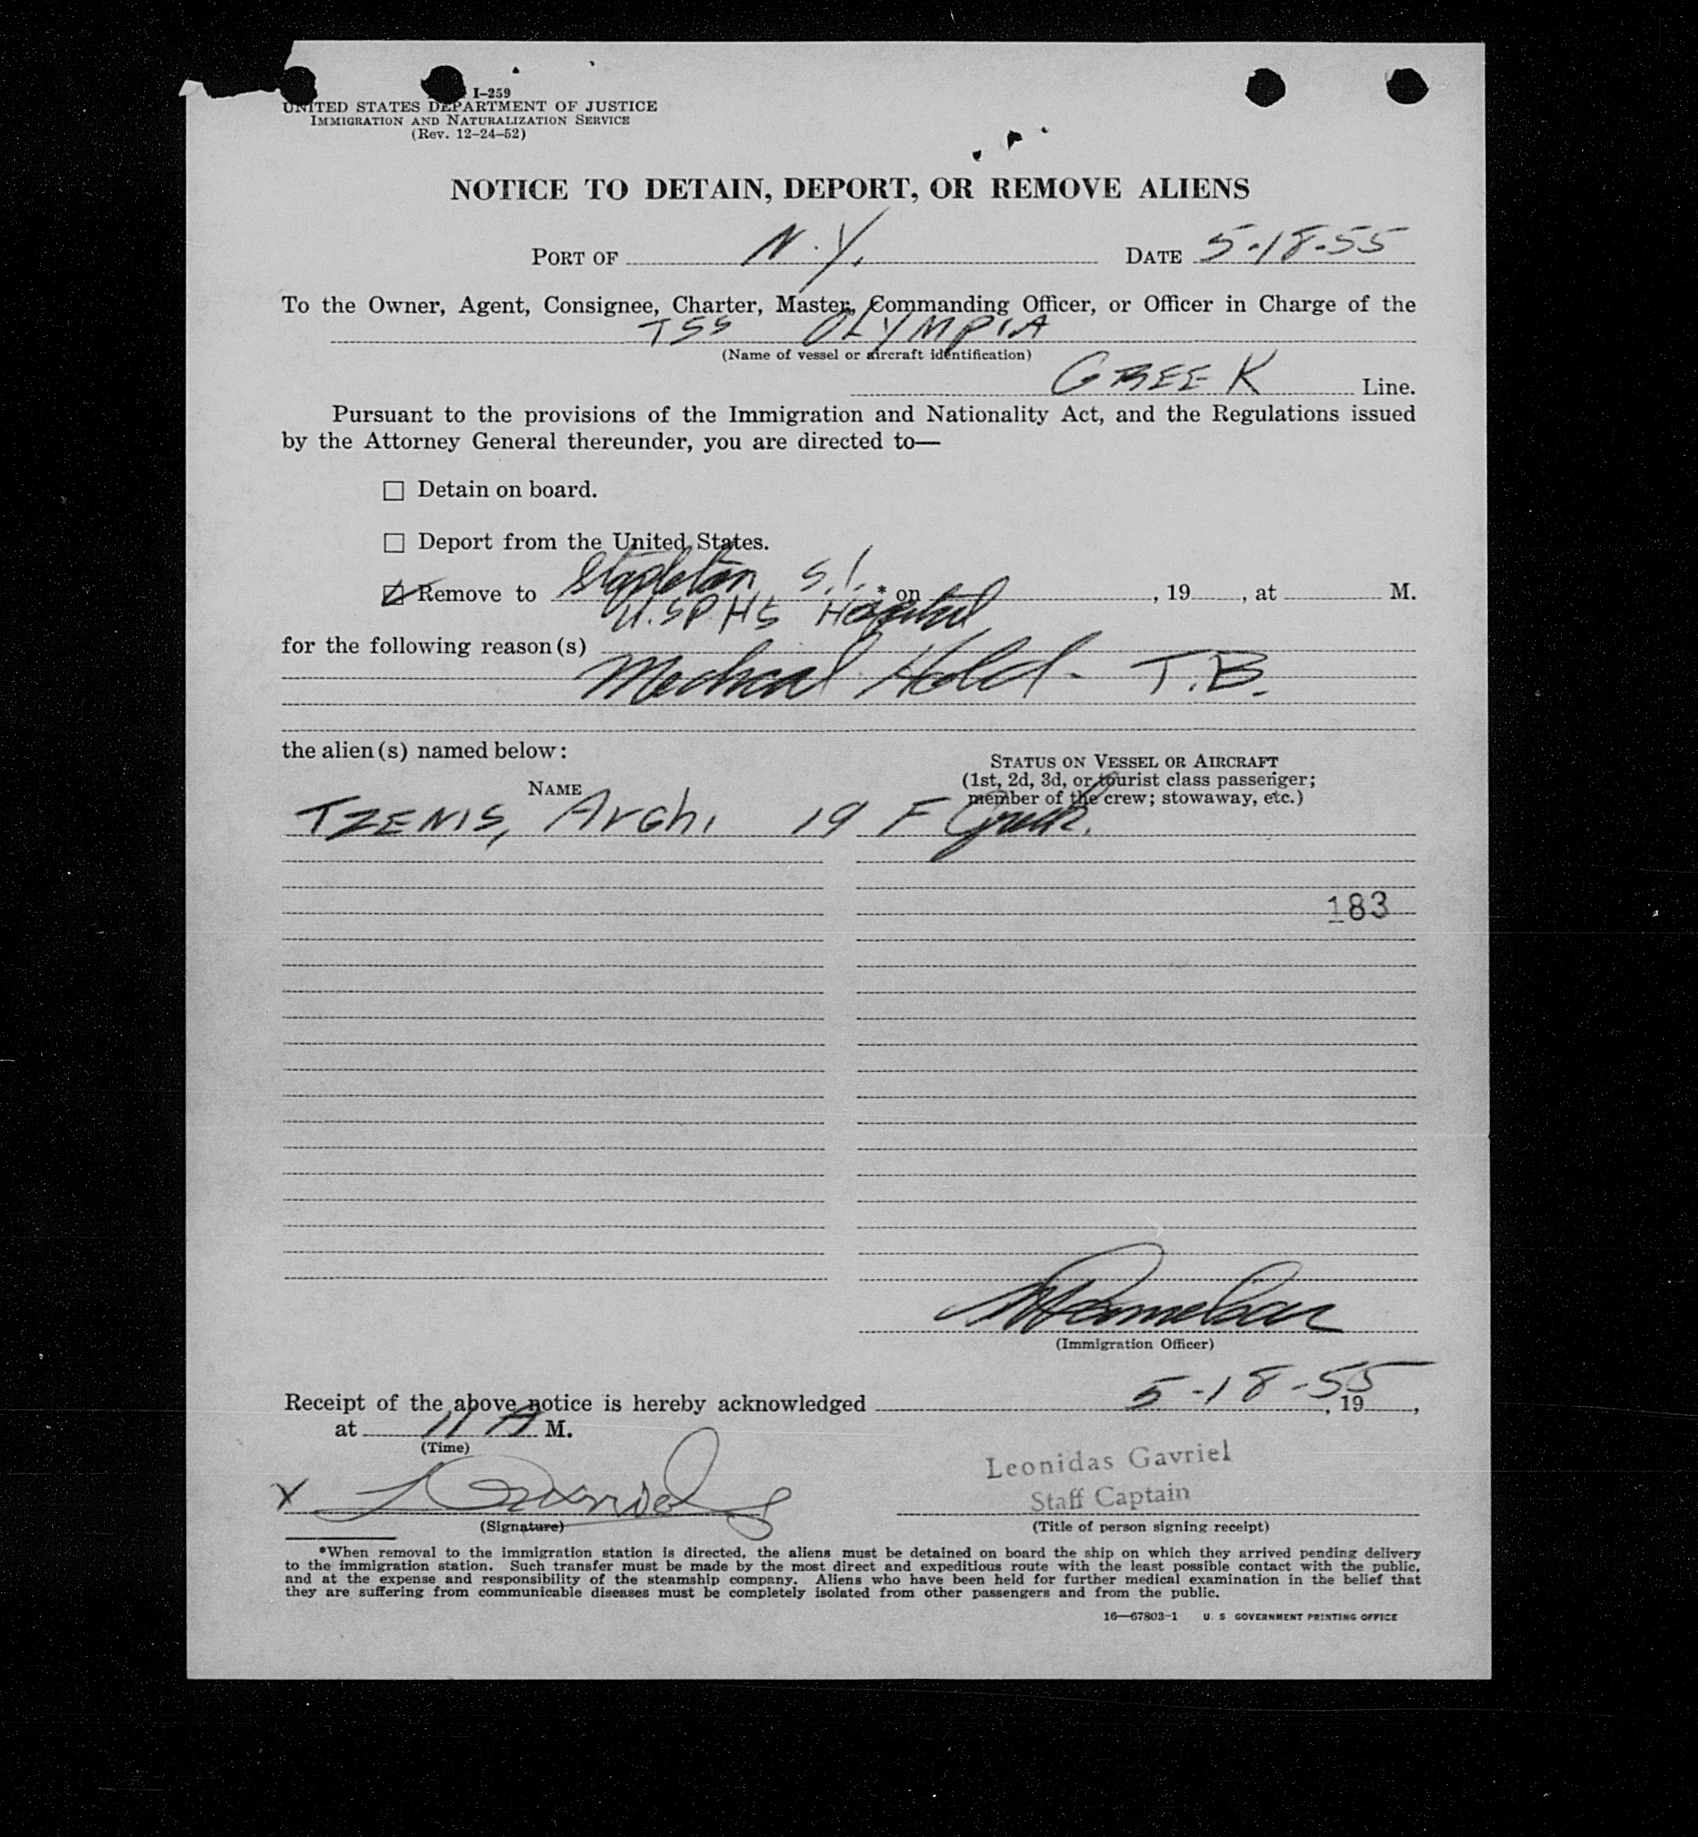 I-259
UNITED STATES DEPARTMENT OF JUSTICE
IMMIGRATION AND NATURALIZATION SERVICE
(Rev. 12-24-52)
NOTICE TO DETAIN, DEPORT, OR REMOVE ALIENS
PORT OF N.Y. DATE 5-18-55
To the Owner, Agent, Consignee, Charter, Master, Commanding Officer, or Officer in Charge of the
TSS OLYMPIA
(Name of vessel or aircraft identification)
GREEK Line.
Pursuant to the provisions of the Immigration and Nationality Act, and the Regulations issued
by the Attorney General thereunder, you are directed to—
☐ Detain on board.
☐ Deport from the United States.
☑ Remove to Stapleton S.I. * on , 19 , at M.
U.S.P.H.S Hospital
for the following reason(s)
Medical Hold - T.B.
the alien(s) named below:
STATUS ON VESSEL OR AIRCRAFT
(1st, 2d, 3d, or tourist class passenger;
member of the crew; stowaway, etc.)
NAME
TZENIS, Arghi 19 F Greek.
183
(Immigration Officer)
Receipt of the above notice is hereby acknowledged 5-18-55, 19 ,
at 11 A M.
(Time)
Leonidas Gavriel
Staff Captain
X
(Signature) (Title of person signing receipt)
*When removal to the immigration station is directed, the aliens must be detained on board the ship on which they arrived pending delivery
to the immigration station. Such transfer must be made by the most direct and expeditious route with the least possible contact with the public,
and at the expense and responsibility of the steamship company. Aliens who have been held for further medical examination in the belief that
they are suffering from communicable diseases must be completely isolated from other passengers and from the public.
16—67803-1 U. S GOVERNMENT PRINTING OFFICE